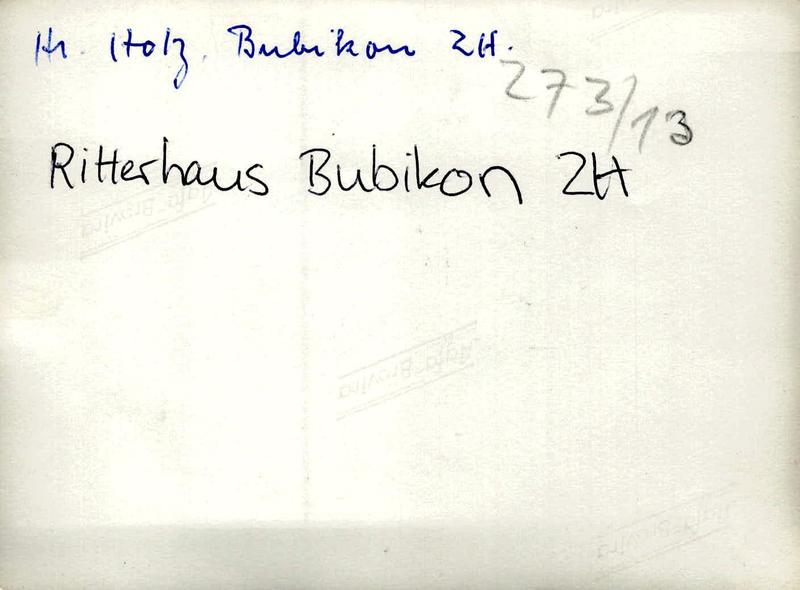 Hr. Holz, Bubikon ZH.
273/13
Ritterhaus Bubikon ZH
Agfa-Brovira
Agfa-Brovira
Agfa-Brovira